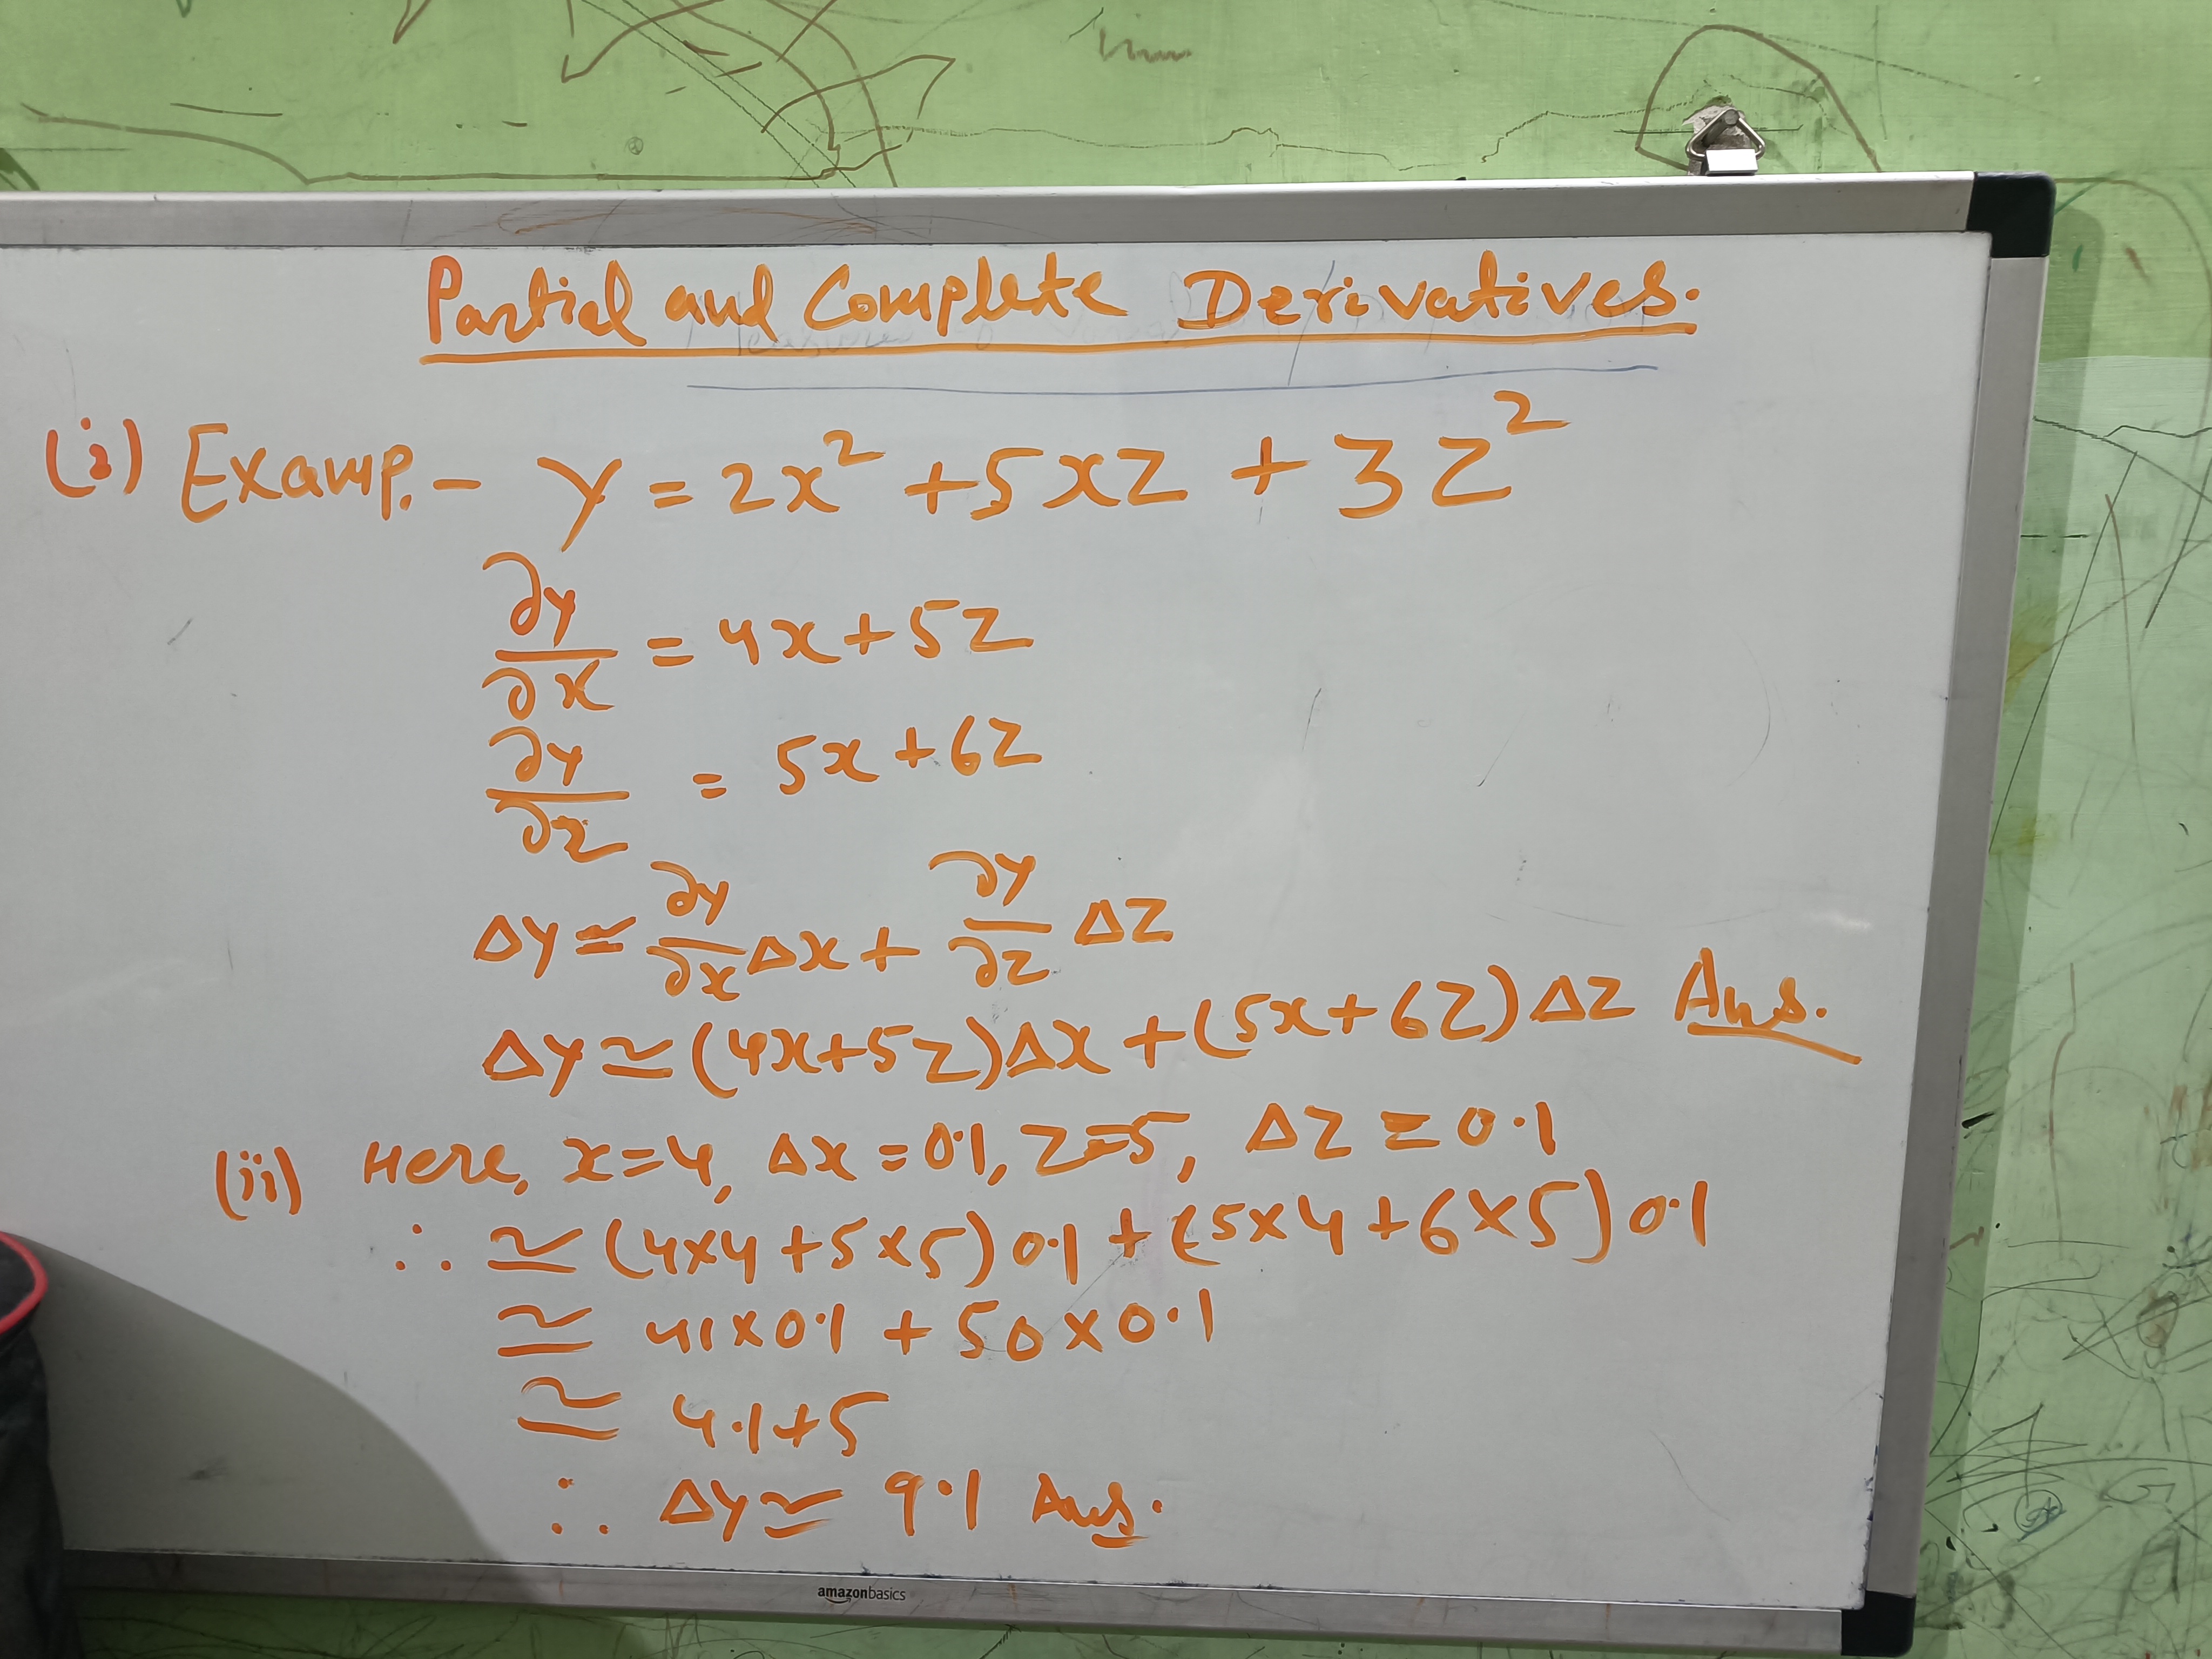 Partial and Complete Derivatives.
(i) Examp. - y = 2x² + 5xz + 3z²
∂y/∂x = 4x + 5z
∂y/∂z = 5x + 6z
Δy ≃ ∂y/∂x Δx + ∂y/∂z Δz
Δy ≃ (4x+5z)Δx + (5x+6z)Δz Ans.
(ii) Here, x=4, Δx=0.1, z=5, Δz=0.1
∴ ≅ (4×4+5×5)0.1 + (5×4+6×5)0.1
≅ 41×0.1 + 50×0.1
≅ 4.1+5
∴ Δy ≃ 9.1 Ans.
amazonbasics